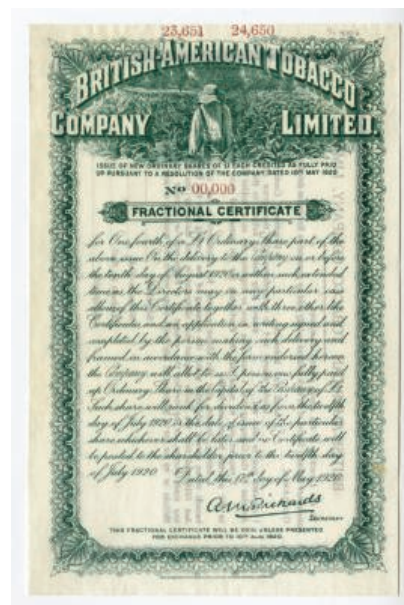 23,651 24,650
BRITISH-AMERICAN TOBACCO
COMPANY LIMITED.
ISSUE OF NEW ORDINARY SHARES OF £1 EACH CREDITED AS FULLY PAID
UP PURSUANT TO A RESOLUTION OF THE COMPANY DATED 10TH MAY 1920
No 00,000
FRACTIONAL CERTIFICATE
for One fourth of a £1 Ordinary Share part of the
above issue On the delivery to the Company on or before
the tenth day of August 1920 or within such extended
time as the Directors may in any particular case
allow of this Certificate together with three other like
Certificates and an application in writing signed and
completed by the person making such delivery and
framed in accordance with the form endorsed hereon
the Company will allot to such person one fully paid
up Ordinary Share in the Capital of the Company of £1.
Such share will rank for dividend as from the twelfth
day of July 1920 or the date of issue of the particular
share whichever shall be later and no Certificate will
be posted to the shareholder prior to the twelfth day
of July 1920 Dated this 12th day of May 1920
Secretary
THIS FRACTIONAL CERTIFICATE WILL BE VOID UNLESS PRESENTED
FOR EXCHANGE PRIOR TO 10TH AUG. 1920.